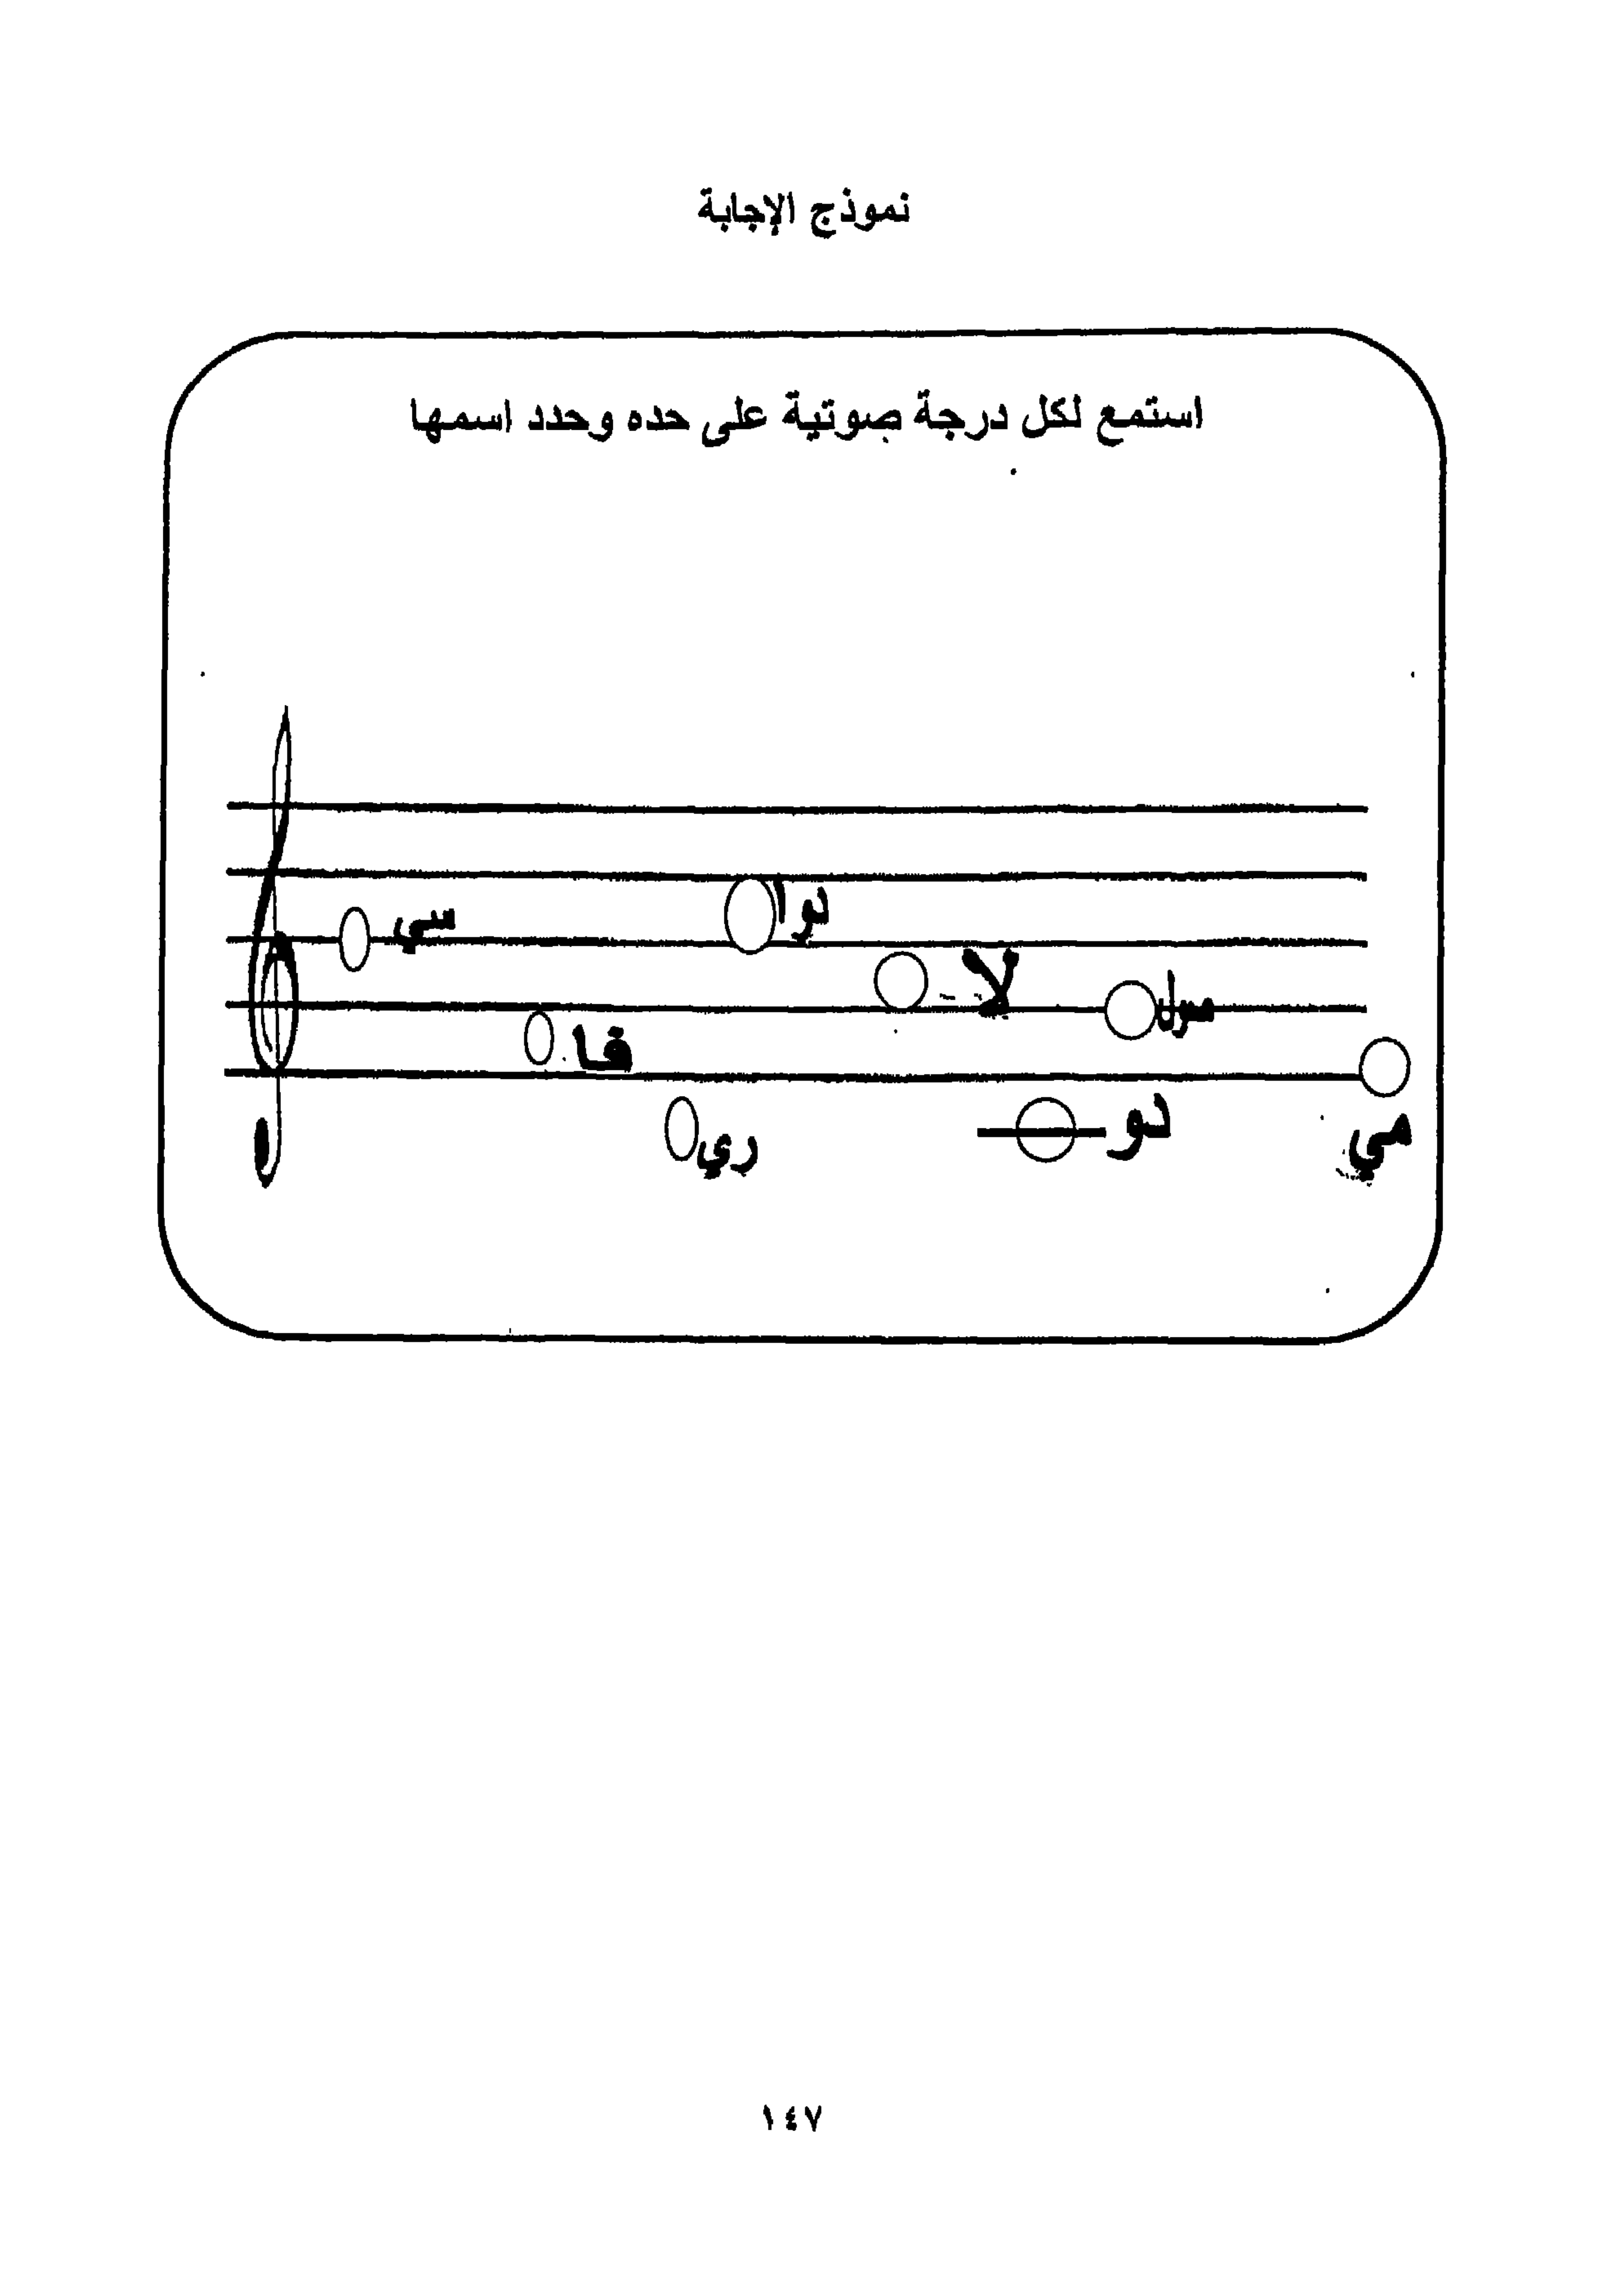 نموذج الإجابة
استمع لكل درجة صوتية على حده وحدد اسمها
سي
دوا
لا
سول
فا
دو
ري
مي
١٤٧